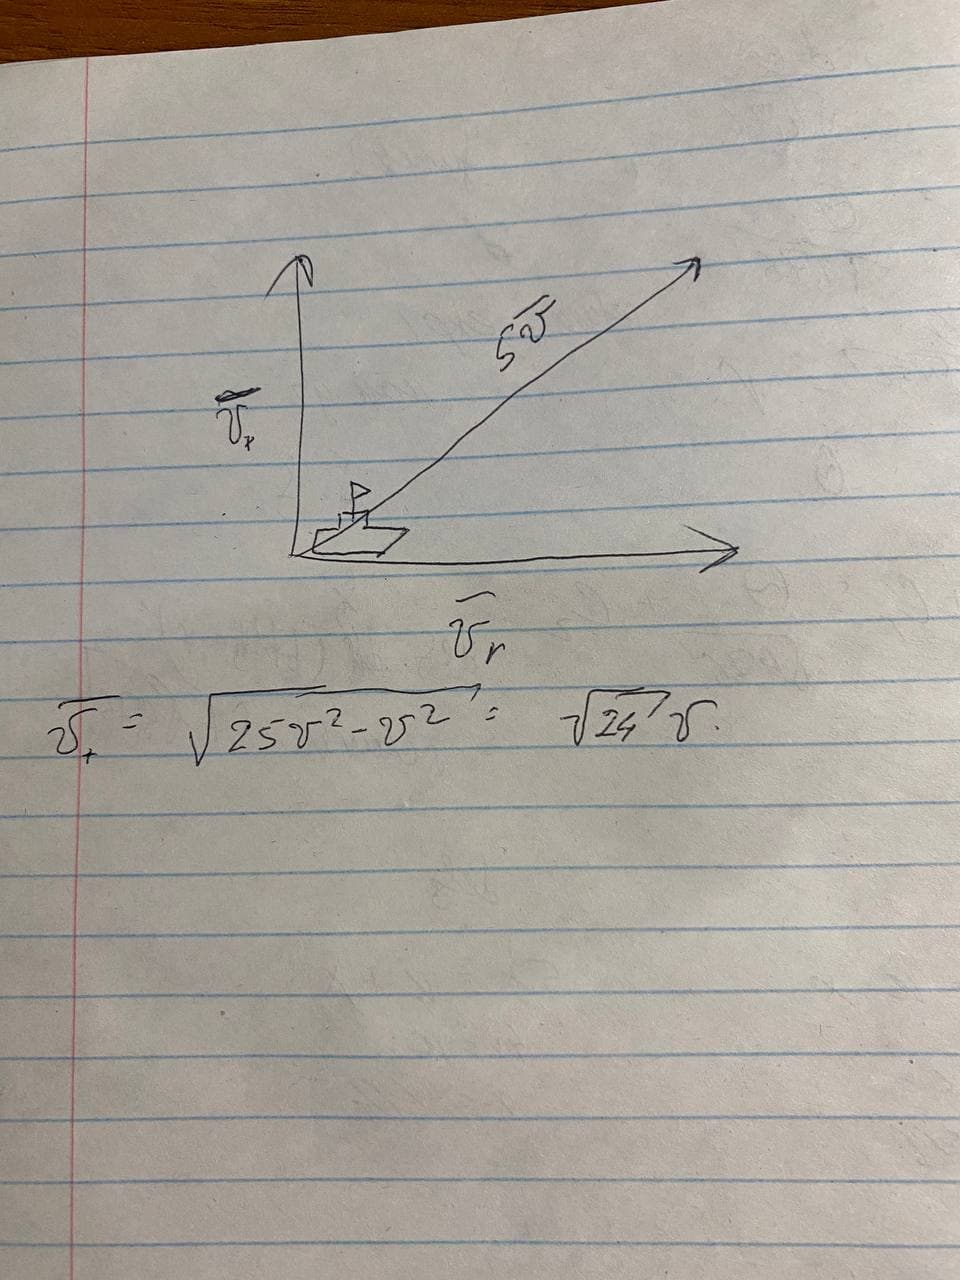 5v̅
v̅ₓ
v̅ᵣ
v̅₊ = √25v² - v² = √24 v.